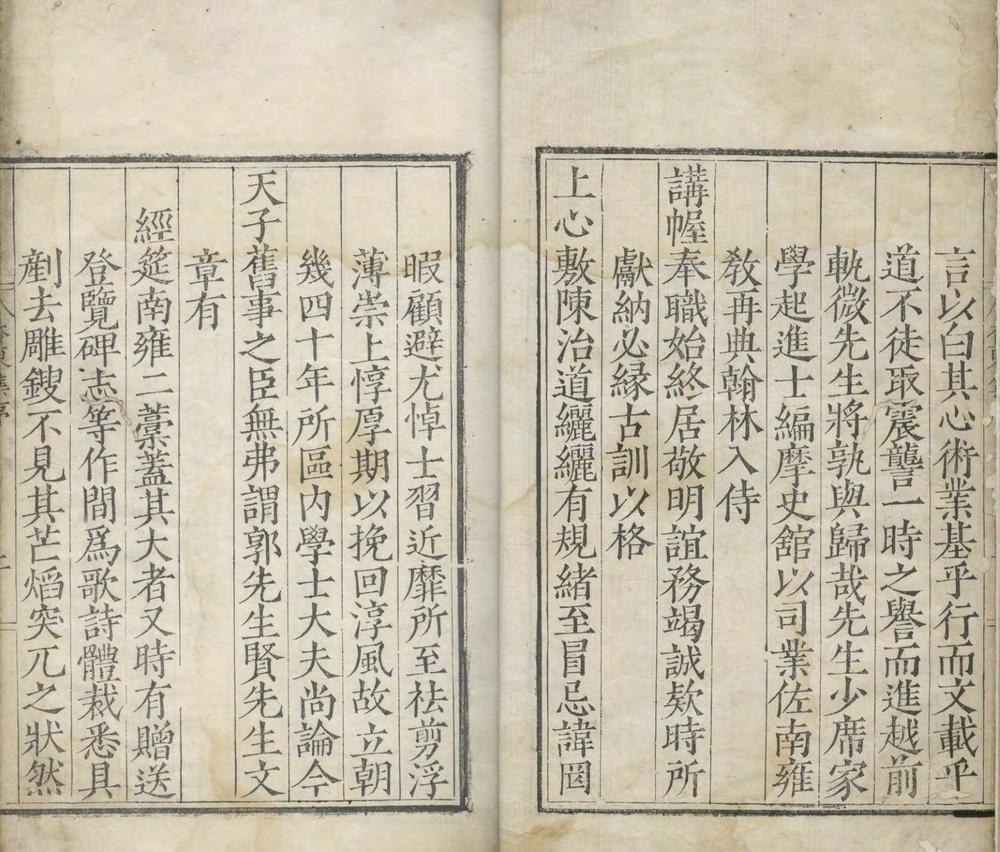 言以白其心術業基乎行而文載乎
道不徒取震讋一時之譽而進越前
軌微先生將孰與歸哉先生少席家
學起進士編摩史館以司業佐南雍
敎再典翰林入侍
講幄奉職始終居敬明誼務竭誠欵時所
獻納必緣古訓以格
上心敷陳治道纚纚有規緒至冒忌諱罔
暇顧避尤悼士習近靡所至袪剪浮
薄崇上惇厚期以挽回淳風故立朝
幾四十年所區內學士大夫尚論今
天子舊事之臣無弗謂郭先生賢先生文
章有
經筵南雍二藁蓋其大者又時有贈送
登覽碑志等作間爲歌詩體裁悉具
剷去雕鎪不見其芒熖突兀之狀然